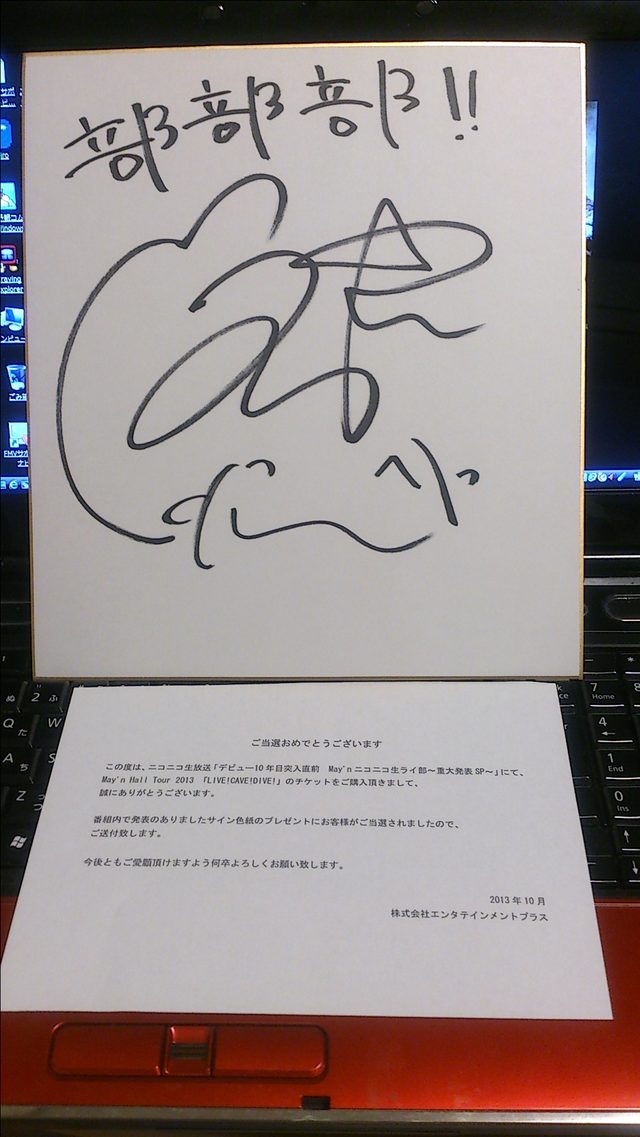 部部部!!
ご当選おめでとうございます
この度は、ニコニコ生放送「デビュー10年目突入直前 May'nニコニコ生ライ部～重大発表SP～」にて、
May'n Hall Tour 2013 「LIVE!CAVE!DIVE!」のチケットをご購入頂きまして、
誠にありがとうございます。
番組内で発表のありましたサイン色紙のプレゼントにお客様がご当選されましたので、
ご送付致します。
今後ともご愛顧頂けますよう何卒よろしくお願い致します。
2013年10月
株式会社エンタテインメントプラス